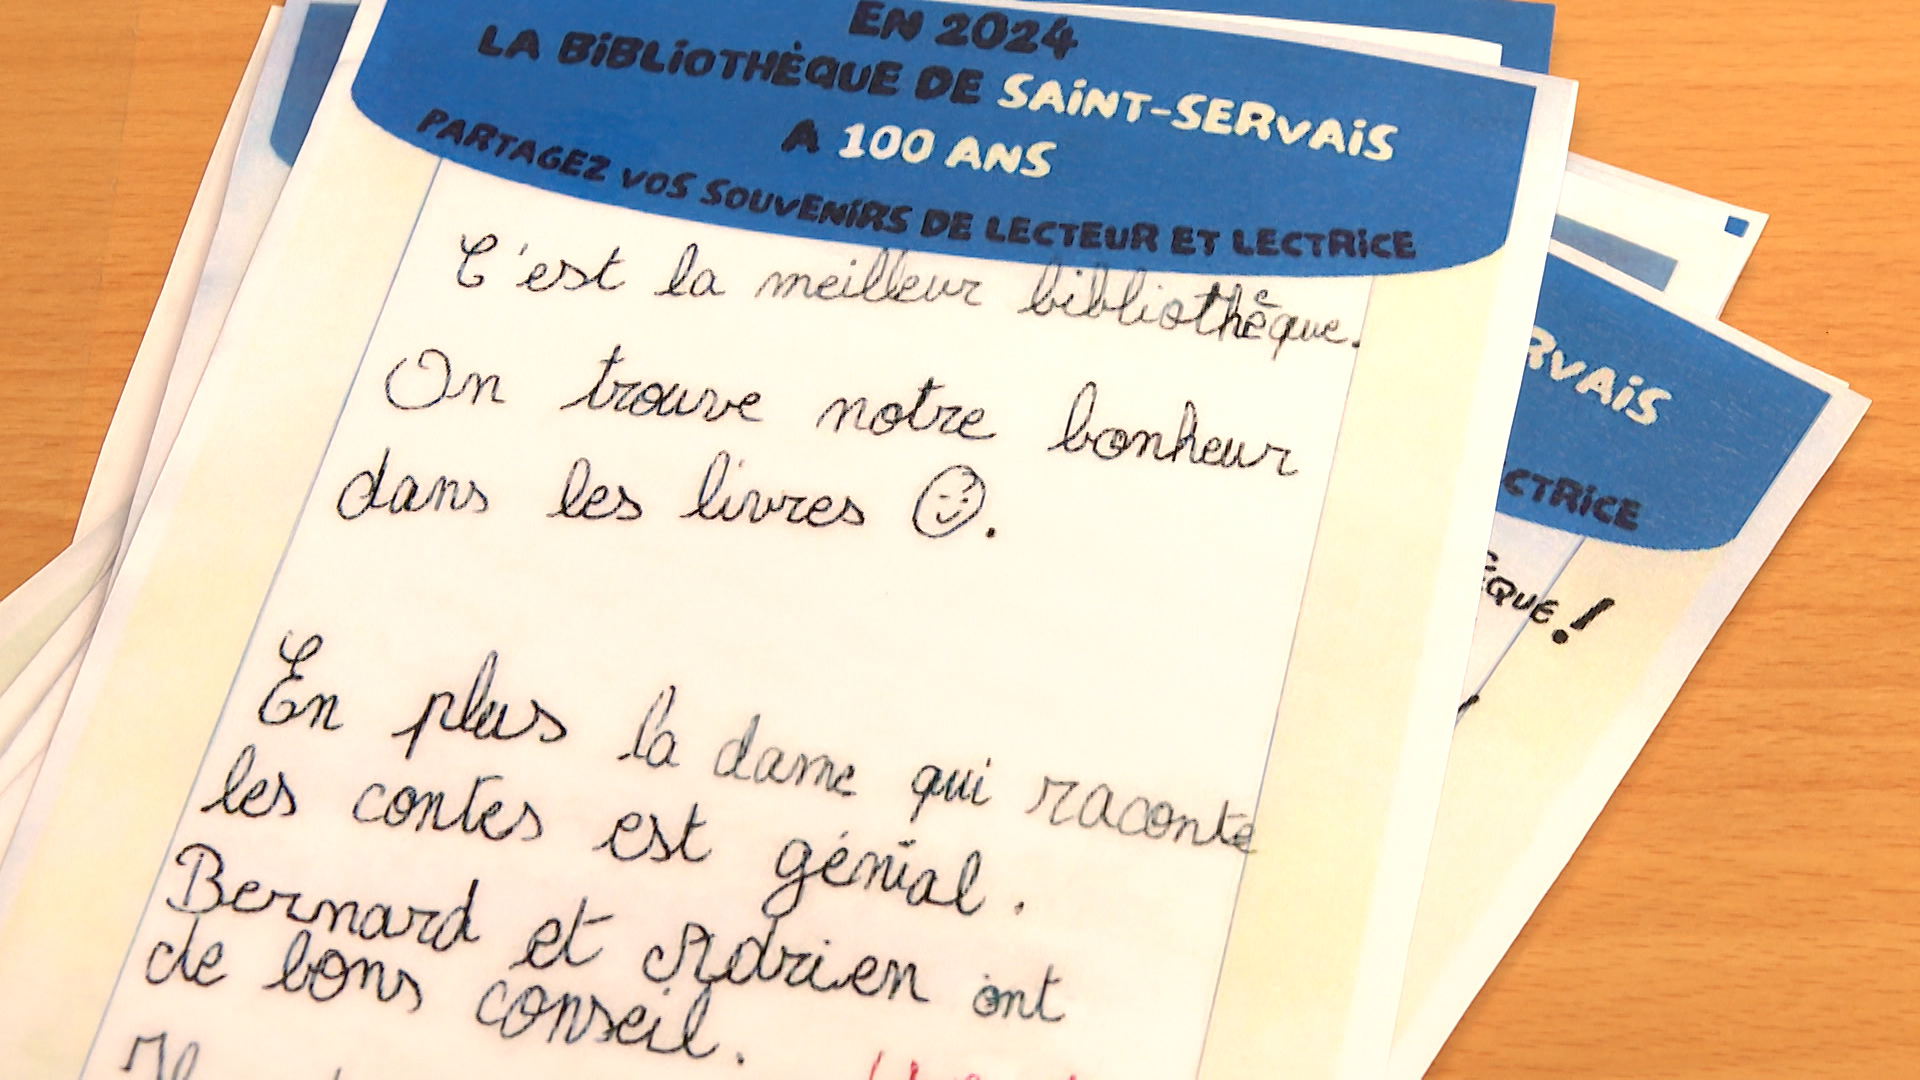 EN 2024
LA BiBLiOTHÈQUE DE SAiNT-SERVAiS
A 100 ANS
PARTAGEZ VOS SOUVENiRS DE LECTEUR ET LECTRiCE
C'est la meilleur bibliothèque.
On trouve notre bonheur
dans les livres ☺.
En plus la dame qui raconte
les contes est génial.
Bernard et Adrien ont
de bons conseil.
RVAiS
CTRiCE
ÈQUE!